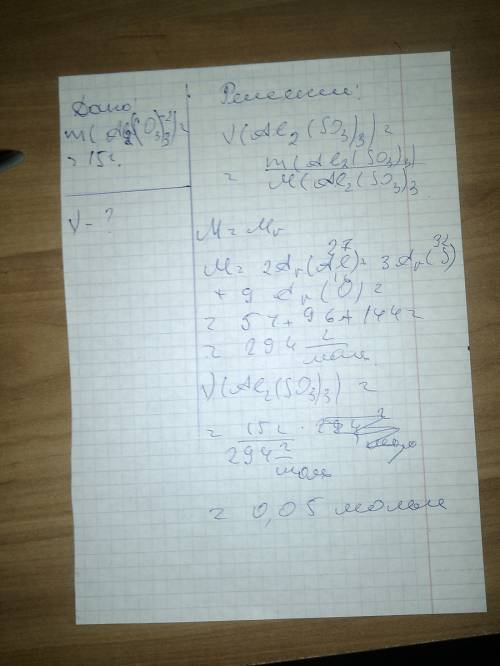 Дано:
m(Al2(SO3)3)=
= 15г.
ν - ?
Решение:
ν(Al2(SO3)3) =
= m(Al2(SO3)3)
M(Al2(SO3)3
M = Mr
27 32
M = 2Ar(Al) + 3Ar(S)
+ 9 Ar(O) =
= 54 + 96 + 144 =
= 294 г
моль
ν(Al2(SO3)3) =
= 15г ·
294 г
моль
= 0,05 молье